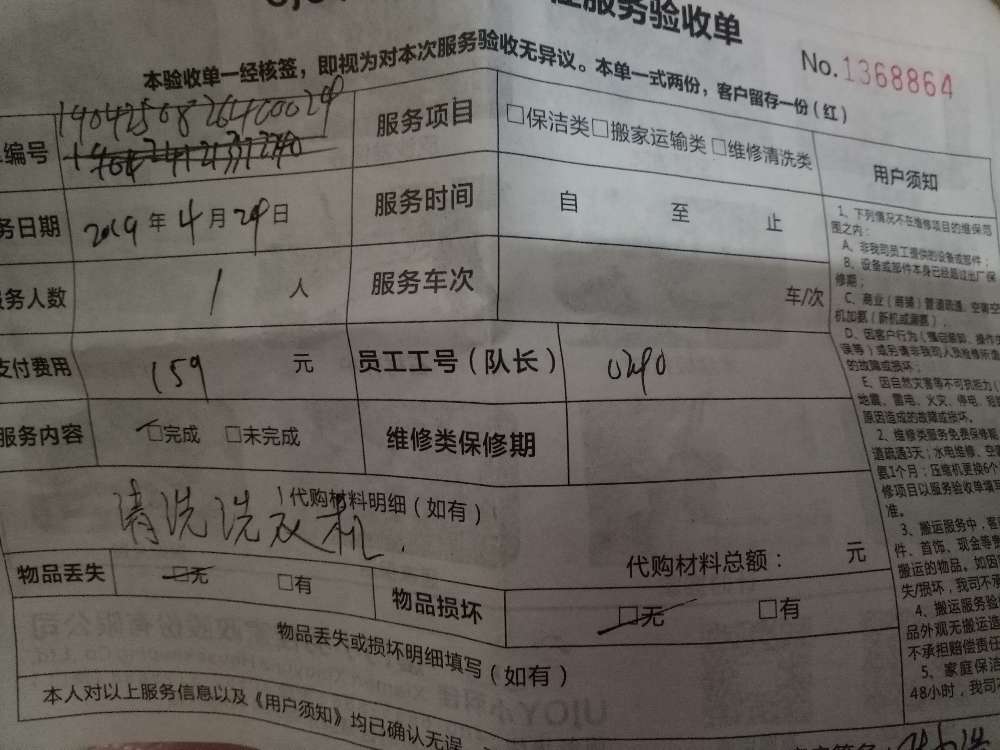 服务验收单
No.1368864
本验收单一经核签，即视为对本次服务验收无异议。本单一式两份，客户留存一份（红）
编号
服务项目
□保洁类□搬家运输类□维修清洗类
用户须知
务日期
2019年4月29日
服务时间
自 至 止
服务人数
1 人
服务车次
车/次
支付费用
159 元
员工工号（队长）
0290
服务内容
□完成 □未完成
维修类保修期
代购材料明细（如有）
清洗洗衣机.
代购材料总额： 元
物品丢失
□无 □有
物品损坏
□无 □有
物品丢失或损坏明细填写（如有）
本人对以上服务信息以及《用户须知》均已确认无误
1、下列情况不在维修项目的维保范
围之内：
A、非我司员工提供的设备或部件；
B、设备或部件本身已经超过出厂保
修期；
C、商业（商铺）管道疏通、空调空
机加氨（新机或漏氨）.
的故障或损坏；
E、因自然灾害等不可抗拒力（
地震、雷电、火灾、停电、
原因造成的故障或损坏。
2、维修类服务免费保修期
道疏通3天；水电维修、空
氨1个月；压缩机更换6个
修项目以服务验收单填写
准。
3、搬运服务中，客
件、首饰、现金等贵
搬运的物品。如因
失/损坏，我司不承
4、搬运服务验
品外观无搬运造
不承担赔偿责任
5、家庭保洁
48小时，我司不